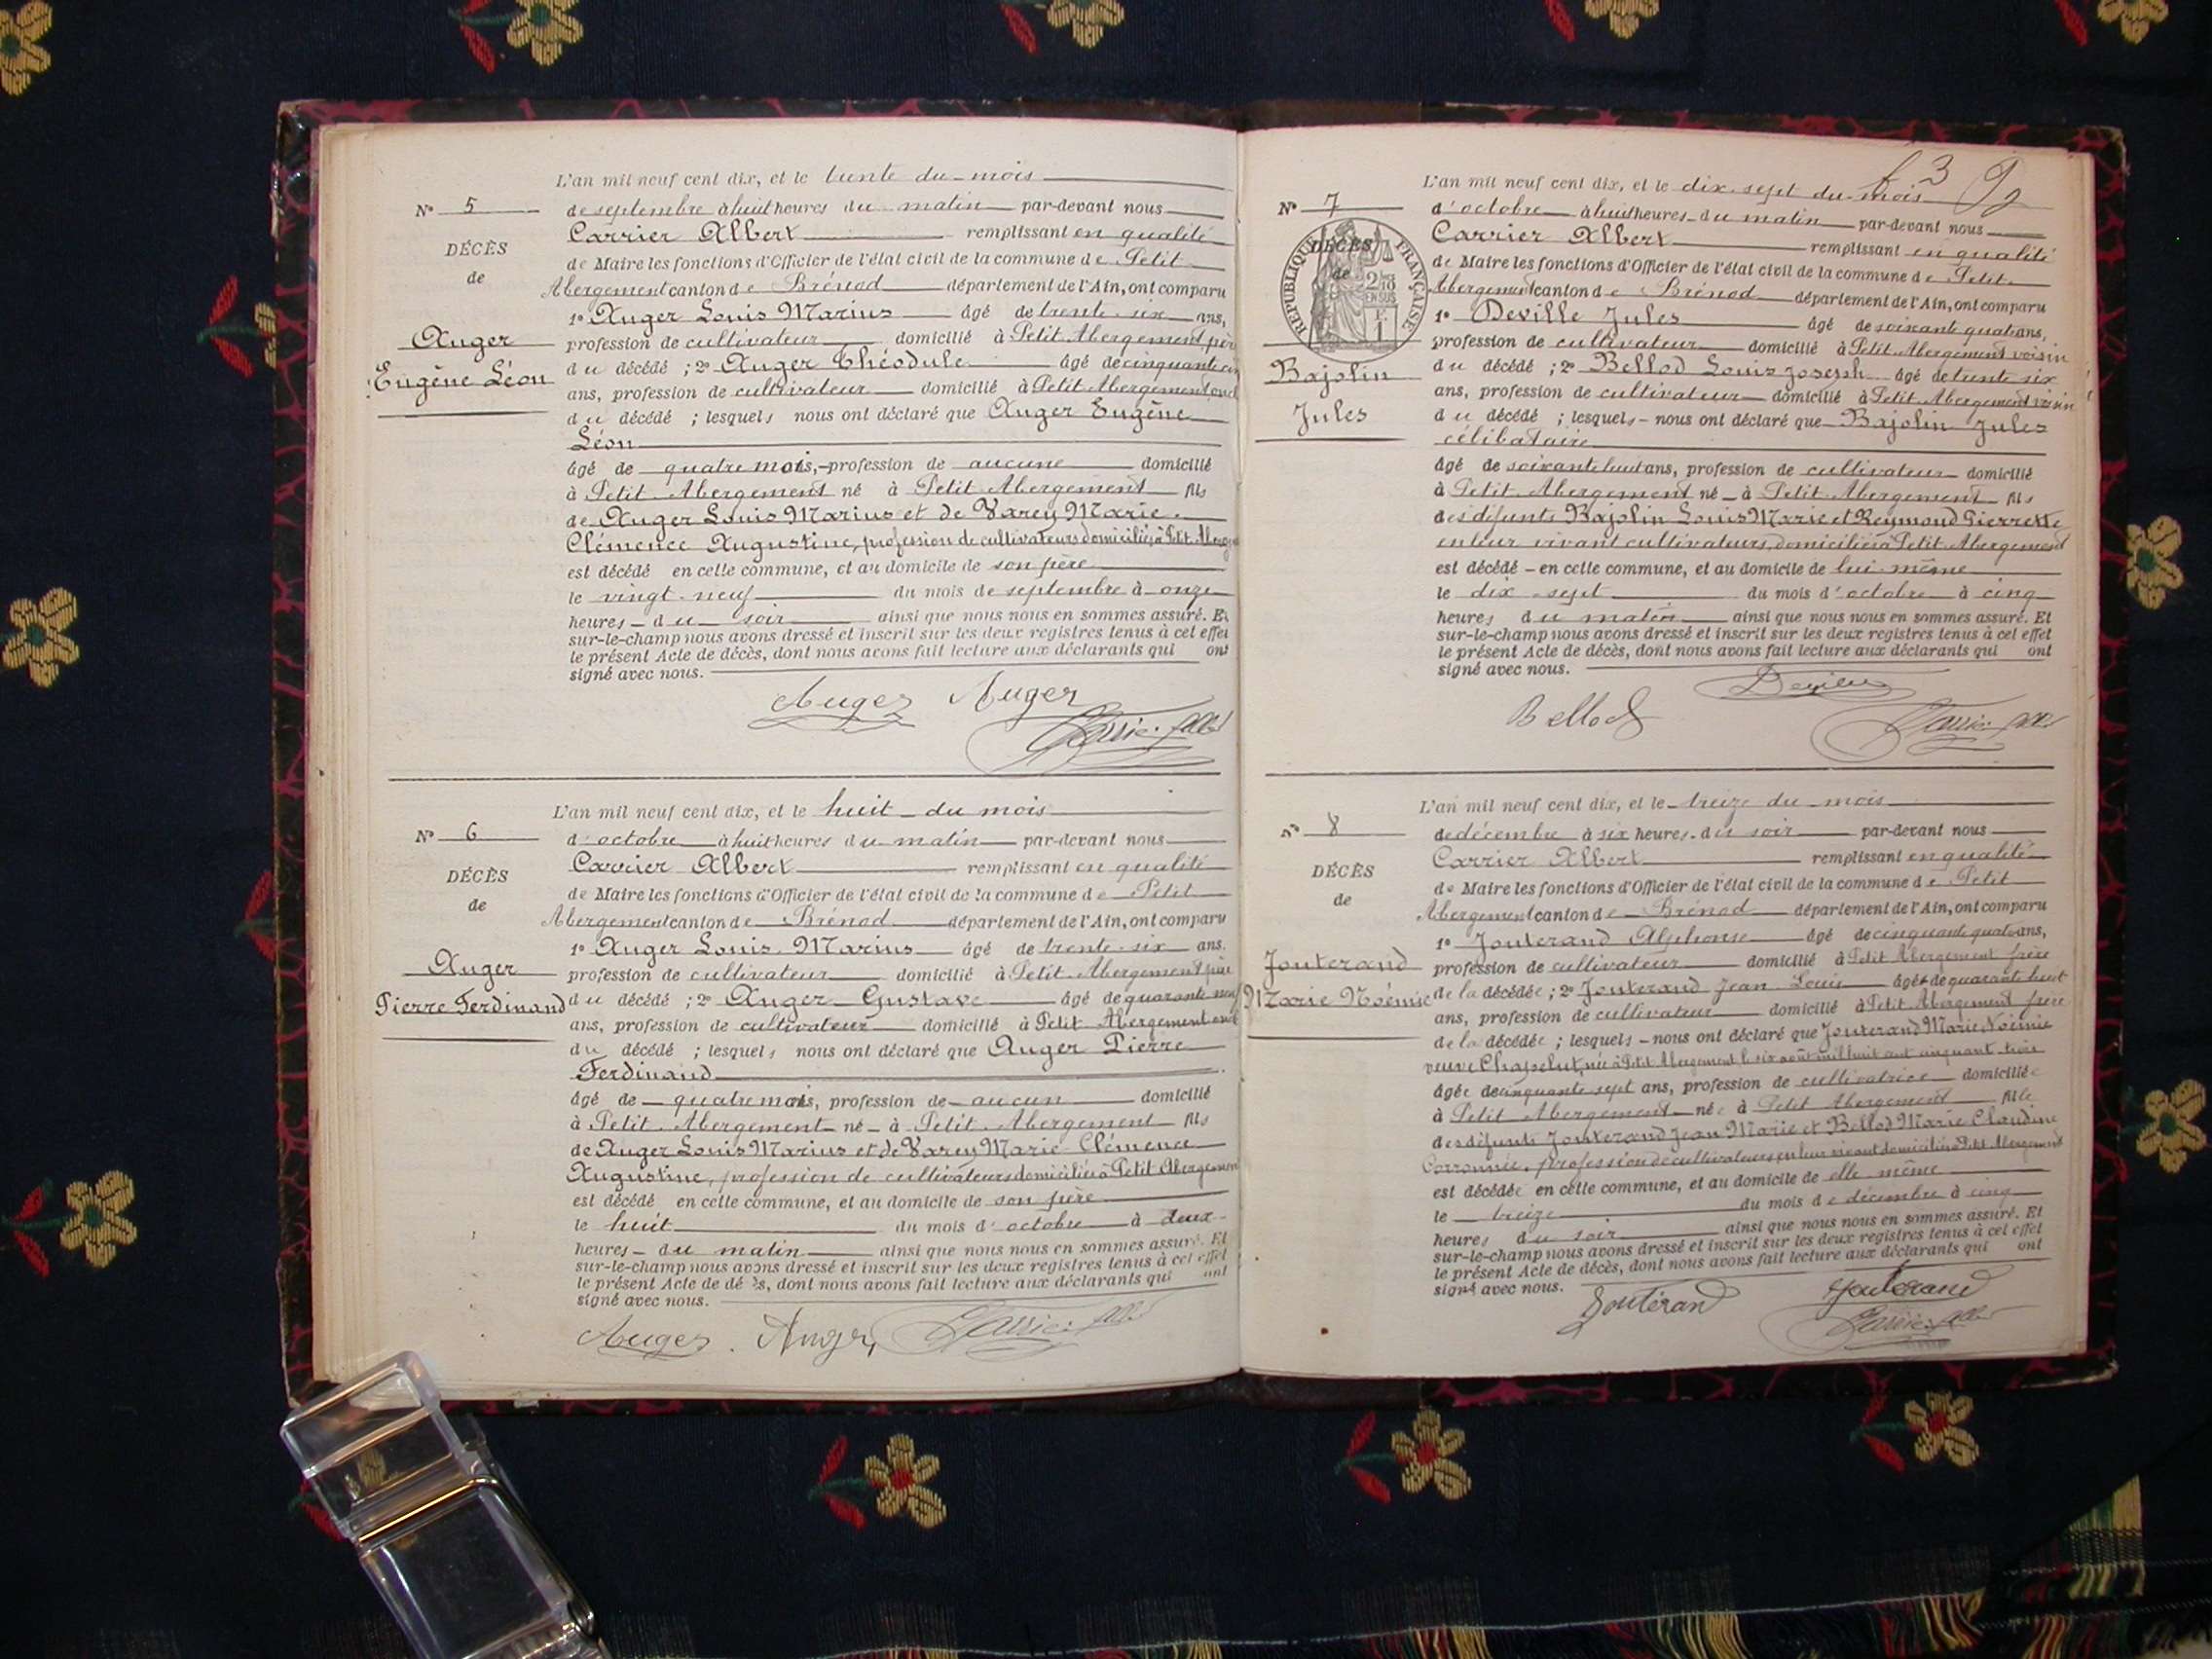 L'an mil neuf cent dix, et le trente du mois
N° 5
de septembre à huit heures du matin par-devant nous
Carrier Albert remplissant en qualité
DÉCÈS
de Maire les fonctions d'Officier de l'état civil de la commune de Petit
de
Abergement canton de Brénod département de l'Ain, ont comparu
1° Auger Louis Marius âgé de trente-six ans,
Auger
profession de cultivateur domicilié à Petit Abergement, père
Eugène Léon
du décédé ; 2° Auger Théodule âgé de cinquante
ans, profession de cultivateur domicilié à Petit Abergement, oncle
du décédé ; lesquels nous ont déclaré que Auger Eugène
Léon
âgé de quatre mois, profession de aucune domicilié
à Petit Abergement né à Petit Abergement fils
de Auger Louis Marius et de Varey Marie
Clémence Augustine, profession de cultivateurs domiciliés à Petit Aberg
est décédé en cette commune, et au domicile de son père
le vingt-neuf du mois de septembre à onze
heures du soir ainsi que nous nous en sommes assuré. Et
sur-le-champ nous avons dressé et inscrit sur les deux registres tenus à cet effet
le présent Acte de décès, dont nous avons fait lecture aux déclarants qui ont
signé avec nous.
Auger Auger
L'an mil neuf cent dix, et le huit du mois
N° 6
d'octobre à huit heures du matin par-devant nous
Carrier Albert remplissant en qualité
DÉCÈS
de Maire les fonctions d'Officier de l'état civil de la commune de Petit
de
Abergement canton de Brénod département de l'Ain, ont comparu
1° Auger Louis Marius âgé de trente-six ans.
Auger
profession de cultivateur domicilié à Petit Abergement père
Pierre Ferdinand
du décédé ; 2° Auger Gustave âgé de quarante neuf
ans, profession de cultivateur domicilié à Petit Abergement oncle
du décédé ; lesquels nous ont déclaré que Auger Pierre
Ferdinand
âgé de quatre mois, profession de aucun domicilié
à Petit Abergement né à Petit Abergement fils
de Auger Louis Marius et de Varey Marie Clémence
Augustine, profession de cultivateurs domiciliés à Petit Abergemen
est décédé en cette commune, et au domicile de son père
le huit du mois d'octobre à deux
heures du matin ainsi que nous nous en sommes assuré. Et
sur-le-champ nous avons dressé et inscrit sur les deux registres tenus à cet effet
le présent Acte de décès, dont nous avons fait lecture aux déclarants qui ont
signé avec nous.
Auger. Auger
f 3
L'an mil neuf cent dix, et le dix-sept du mois
N° 7
d'octobre à huit heures du matin par-devant nous
Carrier Albert remplissant en qualité
DÉCÈS
de Maire les fonctions d'Officier de l'état civil de la commune de Petit
de
RÉPUBLIQUE FRANÇAISE
2/10 EN SUS
F. 1
Abergement canton de Brénod département de l'Ain, ont comparu
1° Deville Jules âgé de soixante quatre ans,
profession de cultivateur domicilié à Petit Abergement voisin
Bajolin
du décédé ; 2° Bellod Louis Joseph âgé de trente six
ans, profession de cultivateur domicilié à Petit Abergement voisin
Jules
du décédé ; lesquels nous ont déclaré que Bajolin Jules
célibataire
âgé de soixante huit ans, profession de cultivateur domicilié
à Petit Abergement né à Petit Abergement fils
des défunts Bajolin Louis Marie et Reymond Pierrette
en leur vivant cultivateurs, domiciliés à Petit Abergement
est décédé en cette commune, et au domicile de lui-même
le dix-sept du mois d'octobre à cinq
heures du matin ainsi que nous nous en sommes assuré. Et
sur-le-champ nous avons dressé et inscrit sur les deux registres tenus à cet effet
le présent Acte de décès, dont nous avons fait lecture aux déclarants qui ont
signé avec nous.
Bellod
L'an mil neuf cent dix, et le treize du mois
N° 8
de décembre à six heures du soir par-devant nous
Carrier Albert remplissant en qualité
DÉCÈS
de Maire les fonctions d'Officier de l'état civil de la commune de Petit
de
Abergement canton de Brénod département de l'Ain, ont comparu
1° Jouterand Alphonse âgé de cinquante quatre ans,
Jouterand
profession de cultivateur domicilié à Petit Abergement frère
Marie Noémie
de la décédée ; 2° Jouterand Jean Louis âgé de quarante huit
ans, profession de cultivateur domicilié à Petit Abergement frère
de la décédée ; lesquels nous ont déclaré que Jouterand Marie Noémie
veuve Chapelut, née à Petit Abergement le six août mil huit cent cinquante trois
âgée de cinquante sept ans, profession de cultivatrice domiciliée
à Petit Abergement née à Petit Abergement fille
des défunts Jouterand Jean Marie et Bellod Marie Claudine
profession de cultivateurs en leur vivant domiciliés à Petit Abergement
est décédée en cette commune, et au domicile de elle même
le treize du mois de décembre à cinq
heures du soir ainsi que nous nous en sommes assuré. Et
sur-le-champ nous avons dressé et inscrit sur les deux registres tenus à cet effet
le présent Acte de décès, dont nous avons fait lecture aux déclarants qui ont
signé avec nous.
Jouterand Jouterand